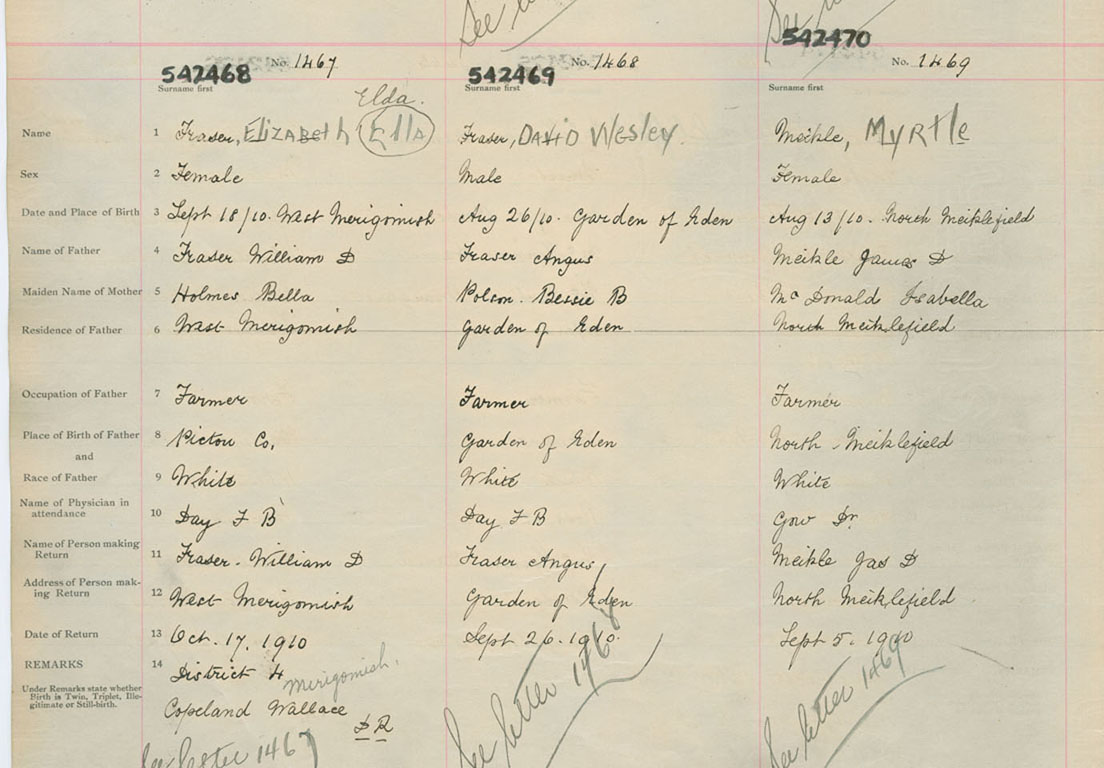 See
See
542468 No. 1467 542469 No. 1468 542470 No. 1469
Surname first Surname first Surname first
Elda.
Name 1 Fraser, Elizabeth Ella Fraser, David Wesley. Meikle, Myrtle
Sex 2 Female Male Female
Date and Place of Birth 3 Sept 18/10. West Merigomish Aug 26/10. Garden of Eden Aug 13/10. North Meiklefield
Name of Father 4 Fraser William D Fraser Angus Meikle James D
Maiden Name of Mother 5 Holmes Bella Polson. Bessie B Mc Donald Isabella
Residence of Father 6 West Merigomish Garden of Eden North Meiklefield
Occupation of Father 7 Farmer Farmer Farmer
Place of Birth of Father 8 Pictou Co, Garden of Eden North Meiklefield
and
Race of Father 9 White White White
Name of Physician in
attendance 10 Day F B Day F B Gow Dr.
Name of Person making
Return 11 Fraser. William D Fraser Angus Meikle Jas D
Address of Person mak-
ing Return 12 West Merigomish Garden of Eden North Meiklefield
Date of Return 13 Oct. 17. 1910 Sept 26. 1910. Sept 5. 1910
REMARKS 14 District 4 Merigomish.
Under Remarks state whether
Birth is Twin, Triplet, Ille-
gitimate or Still-birth.
Copeland Wallace
D R
See letter 1467 See letter 1468 See letter 1469